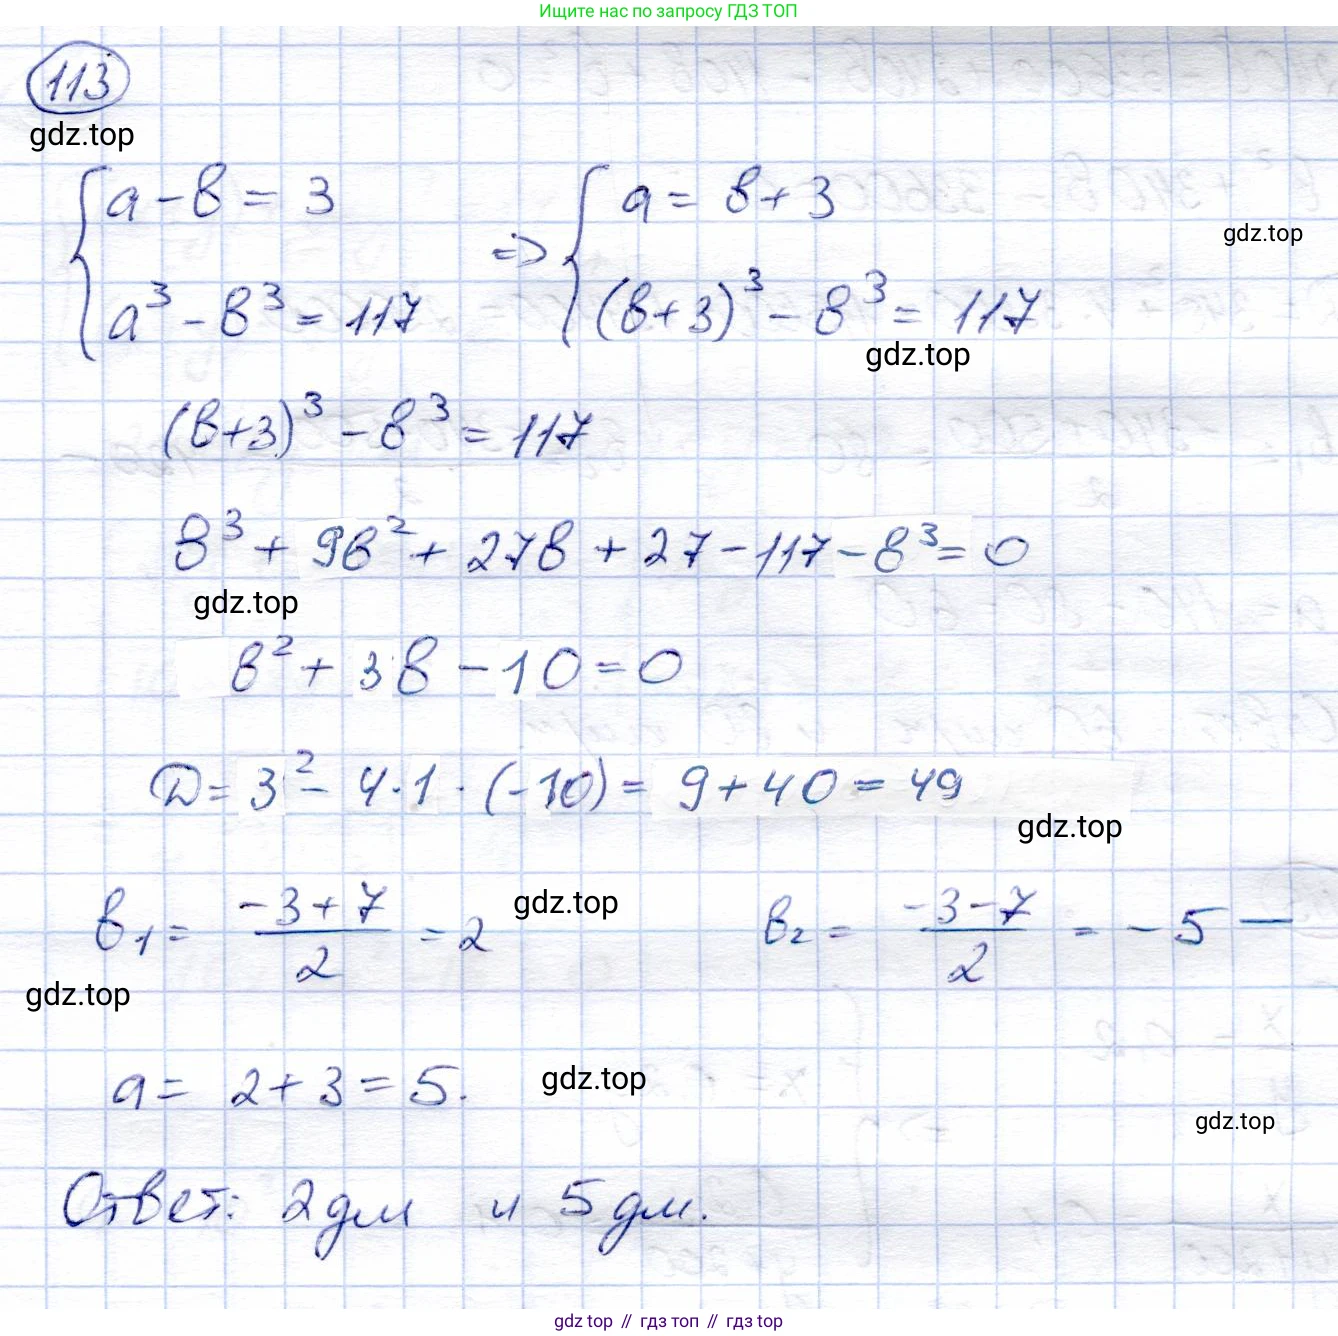 Ищите нас по запросу ГДЗ ТОП
113
gdz.top
{ a - в = 3
a³ - в³ = 117
=> { a = в + 3
(в+3)³ - в³ = 117
gdz.top
gdz.top
(в+3)³ - в³ = 117
в³ + 9в² + 27в + 27 - 117 - в³ = 0
gdz.top
в² + 3в - 10 = 0
D = 3² - 4·1·(-10) = 9 + 40 = 49
gdz.top
в₁ = (-3+7)/2 = 2
gdz.top
в₂ = (-3-7)/2 = -5 —
gdz.top
a = 2 + 3 = 5.
gdz.top
gdz.top
Ответ: 2 дм и 5 дм.
gdz top // гдз топ // гдз top